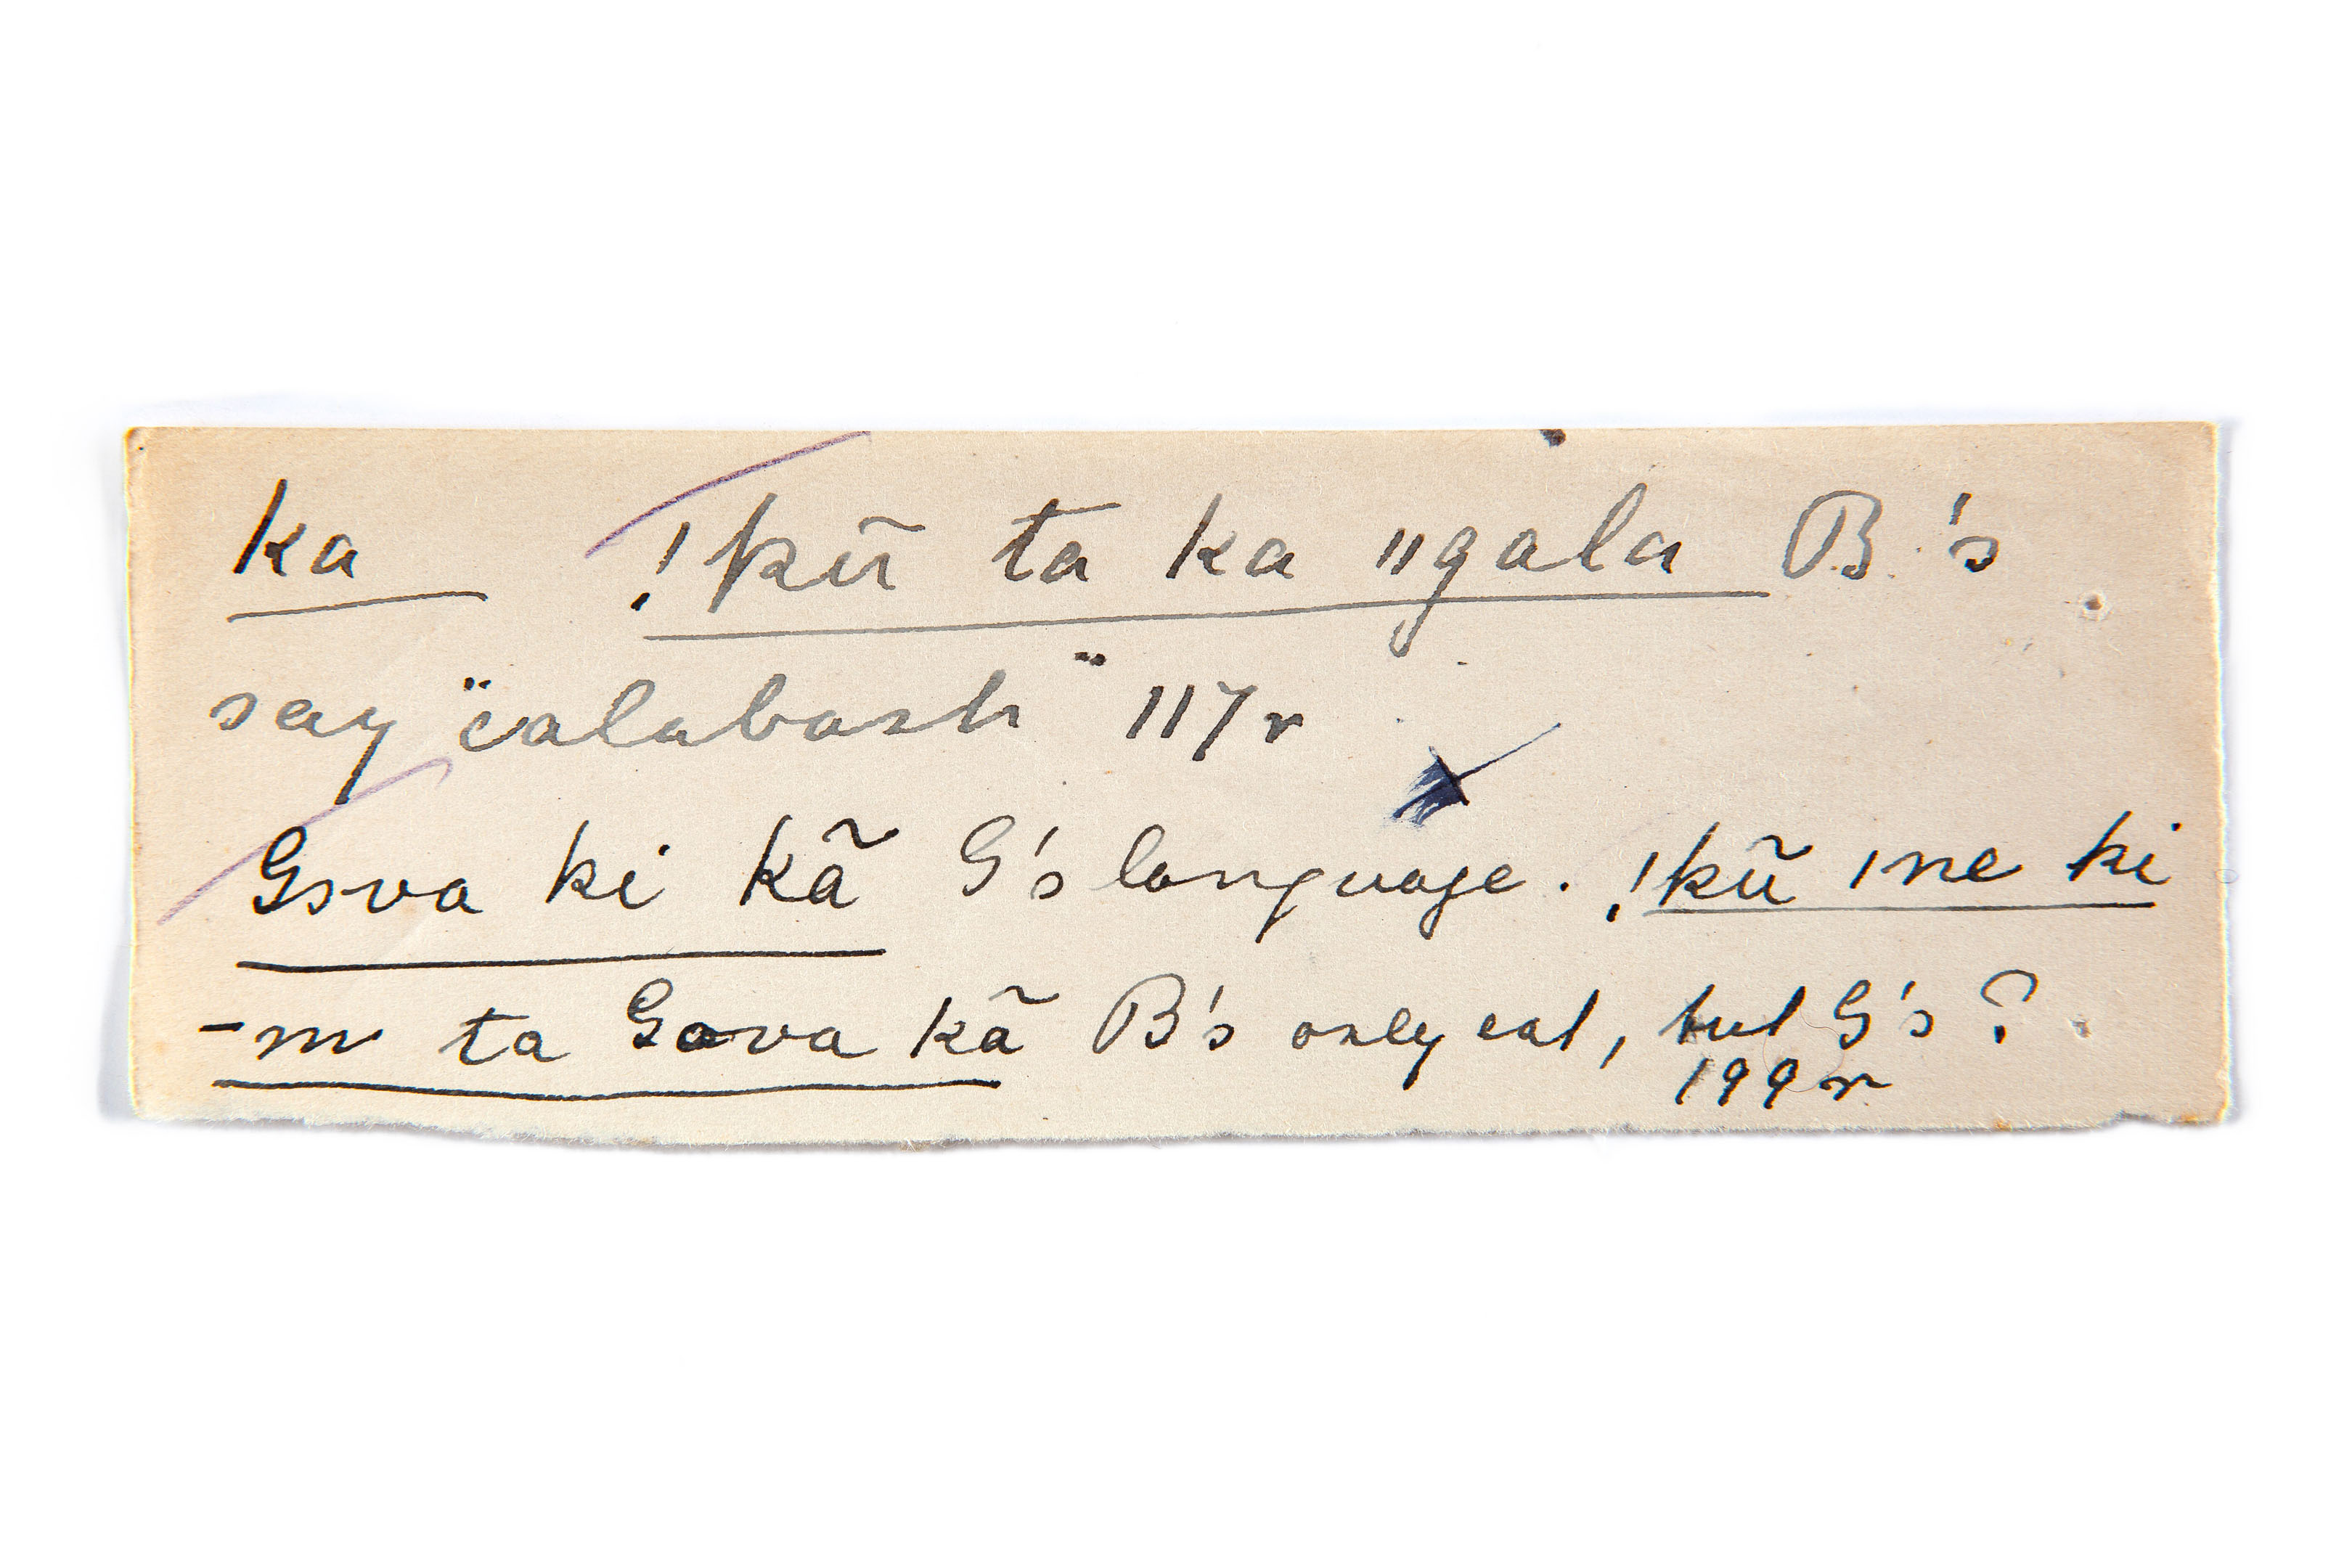 ka !kũ ta ka ǁgala B's
say "calabash" 117r
Gova ki kã G's language. !kũ ǀne ki
-m ta Gova kã B's only eat, but G's?
199r